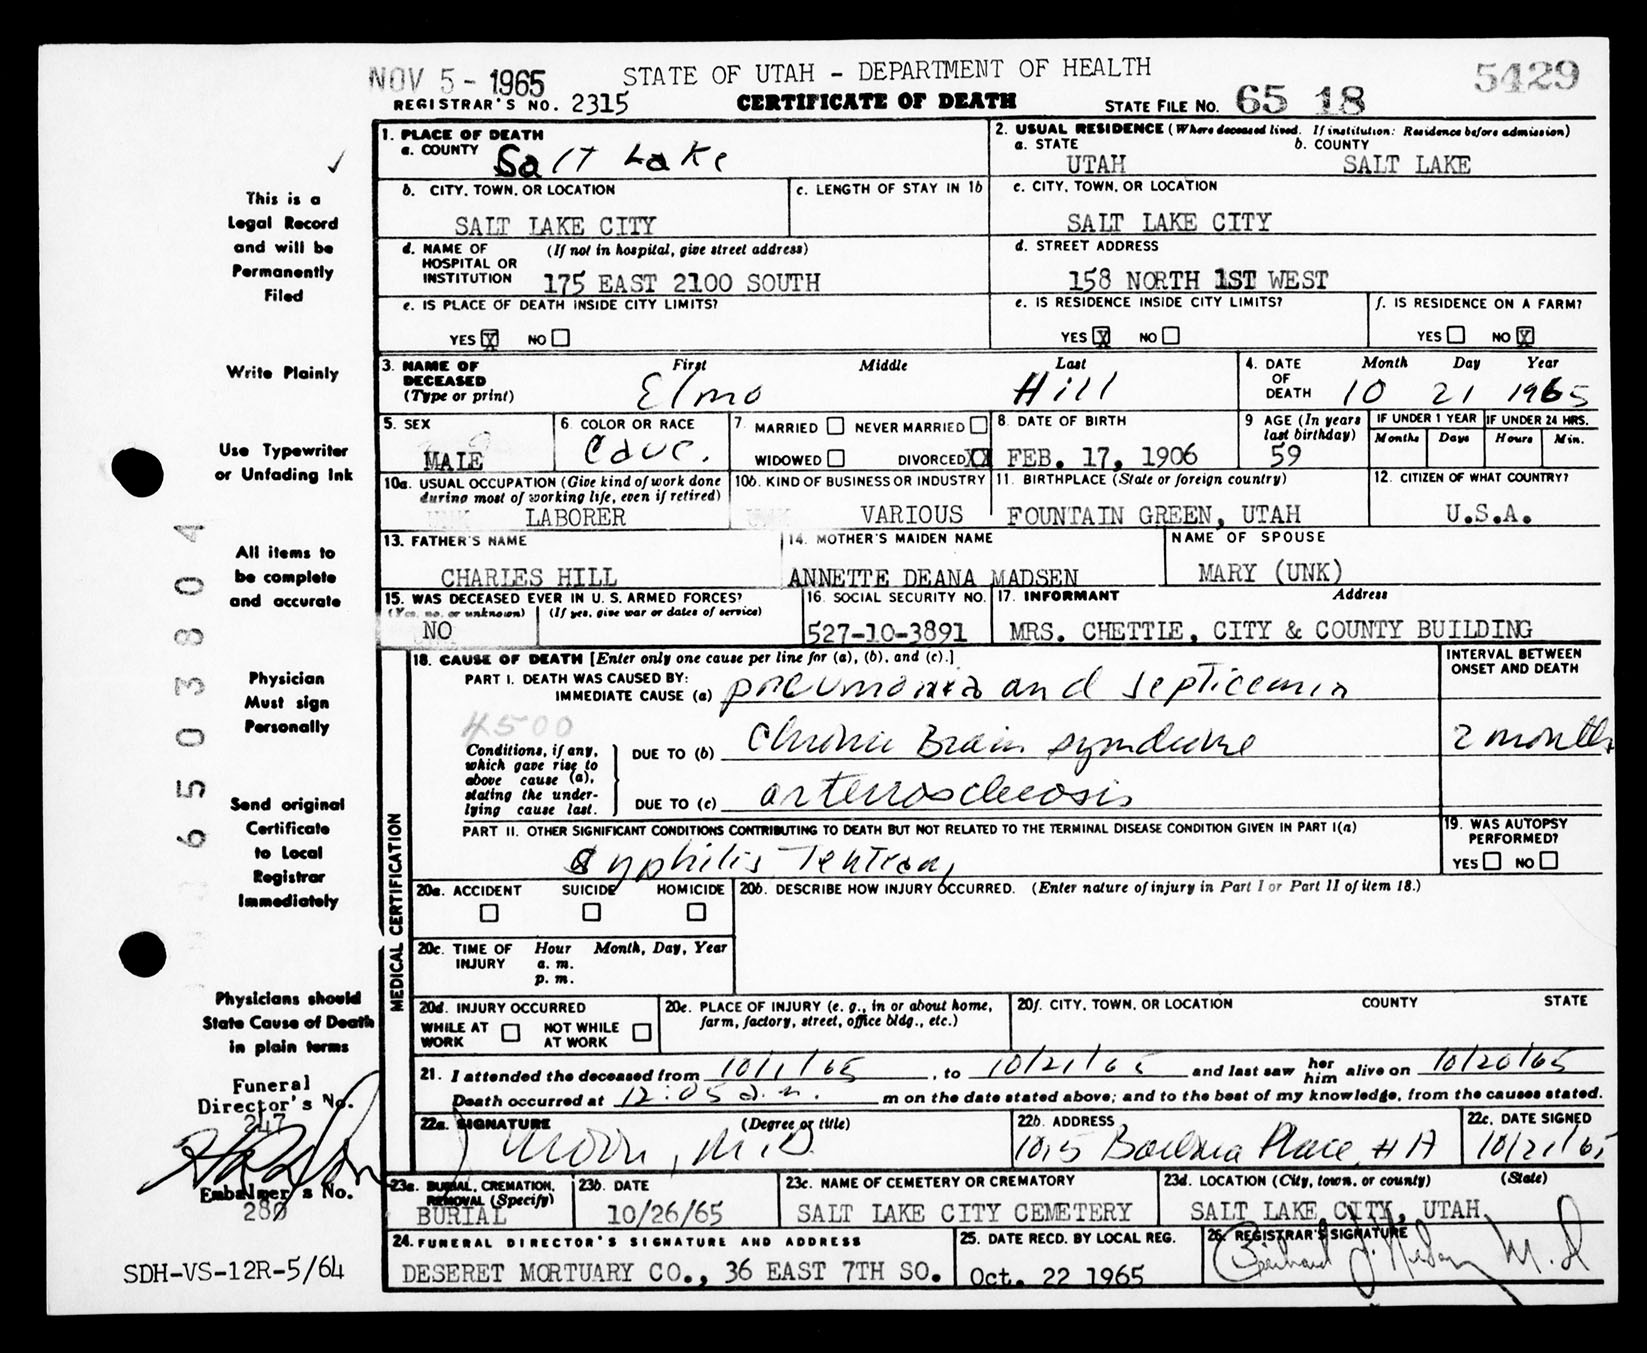 NOV 5 - 1965
STATE OF UTAH - DEPARTMENT OF HEALTH
5429
REGISTRAR'S NO. 2315
CERTIFICATE OF DEATH
STATE FILE NO. 65 18
1. PLACE OF DEATH
a. COUNTY Salt Lake
2. USUAL RESIDENCE (Where deceased lived. If institution: Residence before admission)
a. STATE b. COUNTY
UTAH SALT LAKE
b. CITY, TOWN, OR LOCATION
SALT LAKE CITY
c. LENGTH OF STAY IN 1b
c. CITY, TOWN, OR LOCATION
SALT LAKE CITY
d. NAME OF HOSPITAL OR INSTITUTION (If not in hospital, give street address)
175 EAST 2100 SOUTH
d. STREET ADDRESS
158 NORTH 1ST WEST
e. IS PLACE OF DEATH INSIDE CITY LIMITS?
YES X NO
e. IS RESIDENCE INSIDE CITY LIMITS?
YES X NO
f. IS RESIDENCE ON A FARM?
YES NO X
3. NAME OF DECEASED (Type or print)
First Middle Last
Elmo Hill
4. DATE OF DEATH
Month Day Year
10 21 1965
5. SEX
MALE
6. COLOR OR RACE
Cauc.
7. MARRIED NEVER MARRIED
WIDOWED DIVORCED XX
8. DATE OF BIRTH
FEB. 17, 1906
9 AGE (In years last birthday)
59
IF UNDER 1 YEAR
Months Days
IF UNDER 24 HRS.
Hours Min.
10a. USUAL OCCUPATION (Give kind of work done during most of working life, even if retired)
LABORER
10b. KIND OF BUSINESS OR INDUSTRY
VARIOUS
11. BIRTHPLACE (State or foreign country)
FOUNTAIN GREEN, UTAH
12. CITIZEN OF WHAT COUNTRY?
U.S.A.
13. FATHER'S NAME
CHARLES HILL
14. MOTHER'S MAIDEN NAME
ANNETTE DEANA MADSEN
NAME OF SPOUSE
MARY (UNK)
15. WAS DECEASED EVER IN U.S. ARMED FORCES?
(Yes, no, or unknown) (If yes, give war or dates of service)
NO
16. SOCIAL SECURITY NO.
527-10-3891
17. INFORMANT Address
MRS. CHETTLE, CITY & COUNTY BUILDING
MEDICAL CERTIFICATION
18. CAUSE OF DEATH [Enter only one cause per line for (a), (b), and (c).]
INTERVAL BETWEEN ONSET AND DEATH
PART I. DEATH WAS CAUSED BY:
IMMEDIATE CAUSE (a) pneumonia and septicemia
4500
Conditions, if any, which gave rise to above cause (a), stating the underlying cause last.
DUE TO (b) Chronic Brain syndrome
2 months
DUE TO (c) arteriosclerosis
PART II. OTHER SIGNIFICANT CONDITIONS CONTRIBUTING TO DEATH BUT NOT RELATED TO THE TERMINAL DISEASE CONDITION GIVEN IN PART I(a)
Syphilis Tertiary
19. WAS AUTOPSY PERFORMED?
YES NO
20a. ACCIDENT SUICIDE HOMICIDE
20b. DESCRIBE HOW INJURY OCCURRED. (Enter nature of injury in Part I or Part II of item 18.)
20c. TIME OF INJURY
Hour Month, Day, Year
a. m.
p. m.
20d. INJURY OCCURRED
WHILE AT WORK NOT WHILE AT WORK
20e. PLACE OF INJURY (e. g., in or about home, farm, factory, street, office bldg., etc.)
20f. CITY, TOWN, OR LOCATION COUNTY STATE
21. I attended the deceased from 10/1/65, to 10/21/65 and last saw her him alive on 10/20/65
Death occurred at 12:05 a.m. m on the date stated above; and to the best of my knowledge, from the causes stated.
22a. SIGNATURE (Degree or title)
M.D.
22b. ADDRESS
1015 Place #A
22c. DATE SIGNED
10/21/65
23a. BURIAL, CREMATION, REMOVAL (Specify)
BURIAL
23b. DATE
10/26/65
23c. NAME OF CEMETERY OR CREMATORY
SALT LAKE CITY CEMETERY
23d. LOCATION (City, town, or county) (State)
SALT LAKE CITY, UTAH
24. FUNERAL DIRECTOR'S SIGNATURE AND ADDRESS
DESERET MORTUARY CO., 36 EAST 7TH SO.
25. DATE RECD. BY LOCAL REG.
Oct. 22 1965
26. REGISTRAR'S SIGNATURE
M.D
This is a
Legal Record
and will be
Permanently
Filed
Write Plainly
Use Typewriter
or Unfading Ink
All items to
be complete
and accurate
Physician
Must sign
Personally
Send original
Certificate
to Local
Registrar
Immediately
Physicians should
State Cause of Death
in plain terms
Funeral
Director's No.
247
Embalmer's No.
280
SDH-VS-12R-5/64
6503804